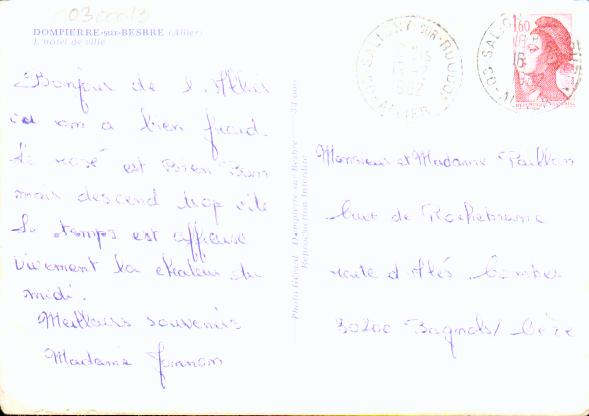 0300013
DOMPIERRE-sur-BESBRE (Allier)
L'hôtel de ville
Bonjour de l'Allier
on a bien froid.
Le rosé est Bien Bon
mais descend trop vite
Le temps est affreuse
vivement la chaleur du
midi.
Meilleurs souvenirs
Madame
Photo Gérard Dompierre-sur-Besbre
Reproduction Interdite
03-SALIGNY SUR-ROUDON
ALLIER
1,60
Monsieur et Madame
de Rochebrune
route d'Alès
30200 Bagnols / Cèze